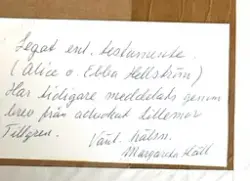 Legat enl. testamente.
(Alice o. Ebba Hellström)
Har tidigare meddelats genom
brev från advokat Lillemor
Tillgren.
Vänl. hälsn.
Margareta